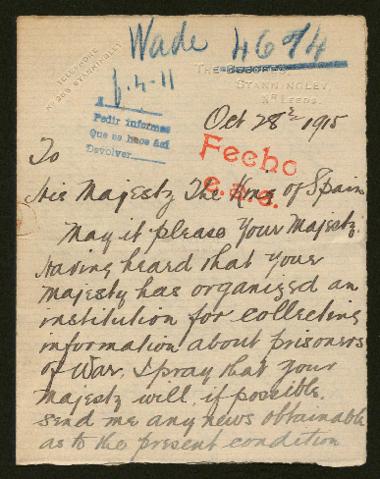 Wade 4674
TELEPHONE
No 269 STANNINGLEY
STANNINGLEY,
NR LEEDS.
Pedir informes
Que se hace así
Devolver
Oct 28 1915
Fecho
To
His Majesty The King of Spain
May it please Your Majesty.
Having heard that your
Majesty has organized an
institution for collecting
information about prisoners
of War, I pray that your
Majesty will, if possible,
send me any news obtainable
as to the present condition